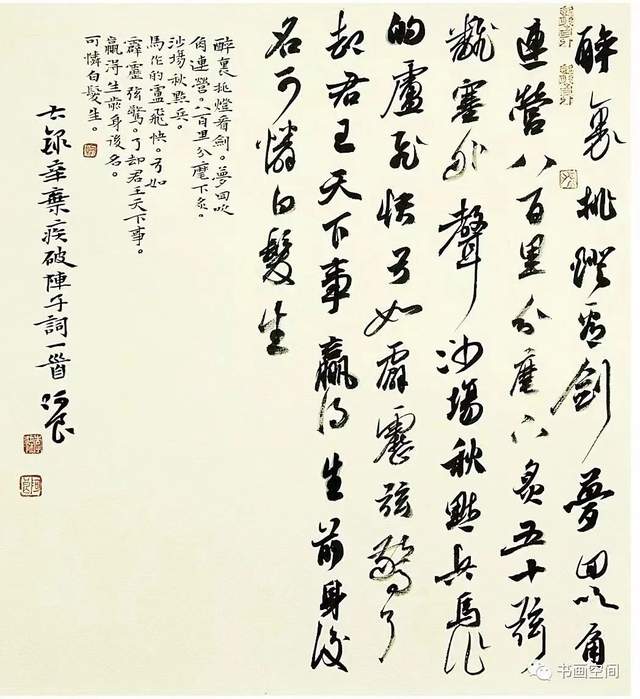 醉裏挑燈看劍夢回吹角
連營八百里分麾下炙五十弦
翻塞外聲沙場秋點兵馬作
的盧飛快弓如霹靂弦驚了
却君王天下事贏得生前身後
名可憐白髮生
醉裏挑燈看劍。夢回吹
角連營。八百里分麾下炙。
沙場秋點兵。
馬作的盧飛快。弓如
霹靂弦驚。了却君王天下事。
贏得生前身後名。
可憐白髮生。
右錄辛棄疾破陣子詞一首
书画空间